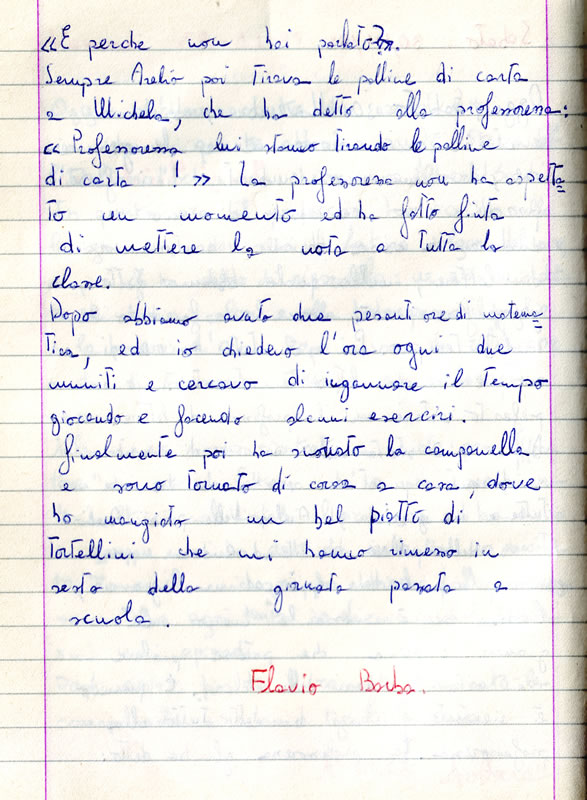 «E perche non hai parlato?».
Sempre Aralio poi tirava le palline di carta
a Michela, che ha detto alla professoressa:
« Professoressa lui stanno tirando le palline
di carta ! » La professoressa non ha aspetta=
to un momento ed ha fatto finta
di mettere la nota a tutta la
classe.
Dopo abbiamo avuto due pesanti ore di matema=
tica, ed io chiedevo l'ora ogni due
minuti e cercavo di ingannare il tempo
giocando e facendo alcuni esercizi.
finalmente poi ha suonato la campanella
e sono tornato di corsa a casa, dove
ho mangiato un bel piatto di
tortellini che mi hanno rimesso in
sesto della giornata passata a
scuola.
Flavio Barba.